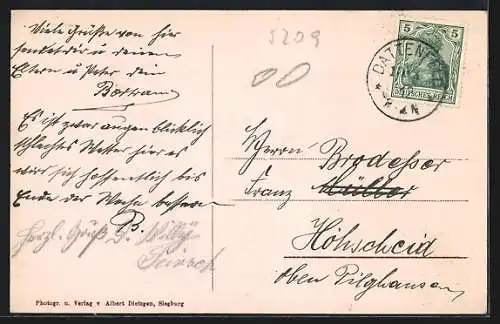 Viele Grüße von hier
sendet dir u deinen
Eltern u Peter dein
Bertram
Es ist zwar augenblicklich
schlechtes Wetter hier es
wird sich hoffentlich bis
Ende der Woche bessern
B.
Herzl. Gruß D. Willy
5209
5 5
DEUTSCHES REICH
DATTENFELD
Herrn Brodesser
Franz Müller
Höhscheid
Oben Pilghausen
Photogr. u. Verlag v Albert Dietzgen, Siegburg